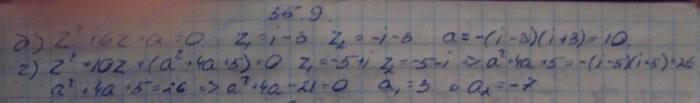 35.9.
д) z² + 6z + a = 0 z₁ = i - 3 z₂ = -i - 3 a = -(i - 3)(i + 3) = 10.
г) z² + 10z + (a² + 4a + 5) = 0 z₁ = -5 + i z₂ = -5 - i => a² + 4a + 5 = -(i - 5)(i + 5) = 26
a² + 4a + 5 = 26 => a² + 4a - 21 = 0 a₁ = 3 и a₂ = -7